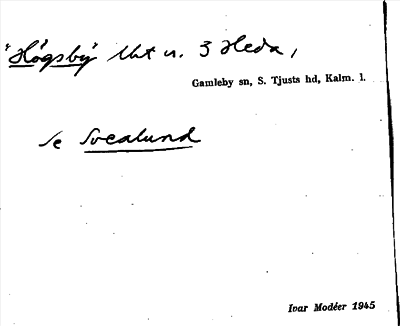 "Högsby" lht u. 3 Heda,
Gamleby sn, S. Tjusts hd, Kalm. l.
Se Svealund
Ivar Modéer 1945